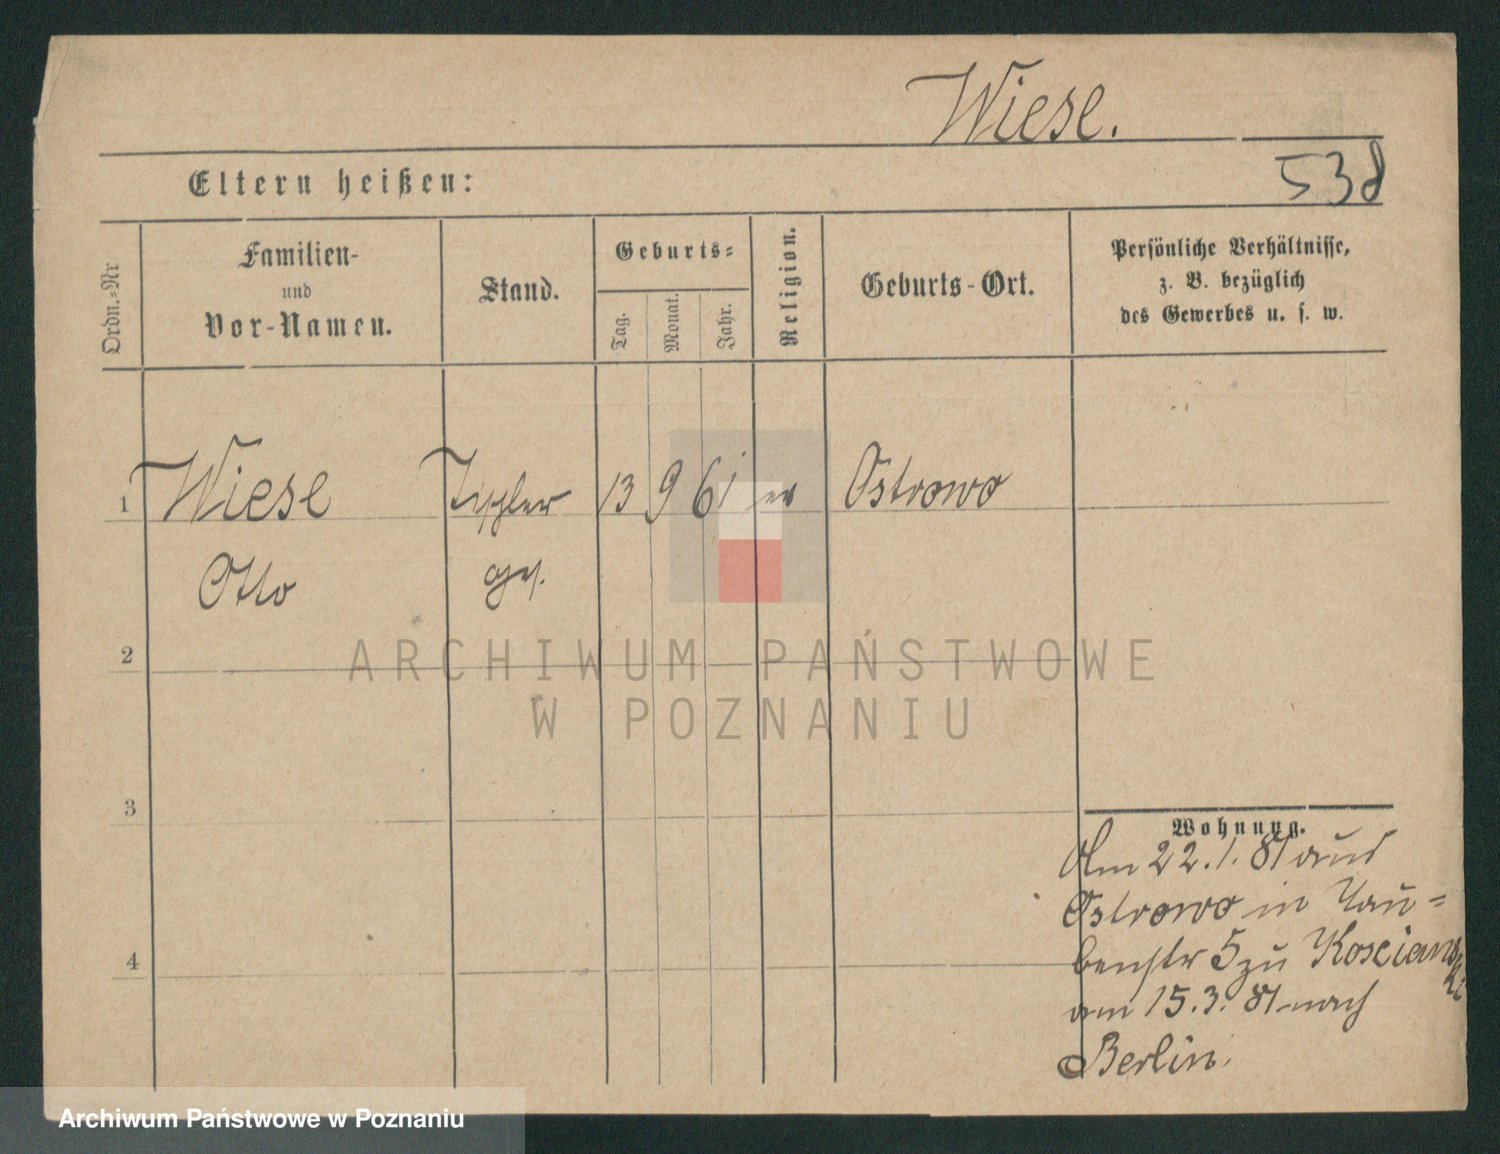 Wiese.
538
Eltern heißen:
Ordn.=Nr
Familien-
und
Vor-Namen.
Stand.
Geburts=
Tag.
Monat.
Jahr.
Religion.
Geburts-Ort.
Persönliche Verhältnisse,
z. B. bezüglich
des Gewerbes u. s. w.
1 Wiese Tischler 13 9 61 ev Ostrowo
Otto ges.
2
3
4
Wohnung.
Am 22.1.81 aus
Ostrowo in Tau=
benstr 5 zu Koscians
ki
am 15.3.81 nach
Berlin.
ARCHIWUM PAŃSTWOWE
W POZNANIU
Archiwum Państwowe w Poznaniu